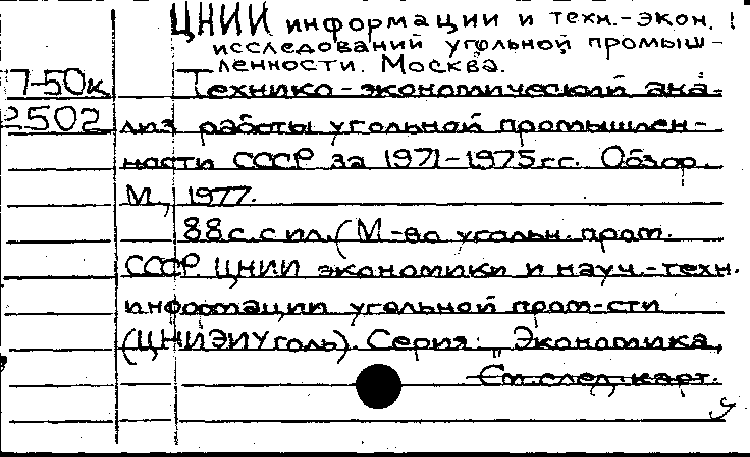 ЦНИИ информации и техн.-экон.
исследований угольной промыш-
ленности. Москва.
7-50к Технико-экономический ана-
2502 лиз работы угольной промышлен-
ности СССР за 1971-1975гг. Обзор.
М., 1977.
88с. с ил. (М-во угольн. пром.
СССР. ЦНИИ экономики и науч.-техн.
информации угольной пром-сти
(ЦНИЭИуголь). Серия: "Экономика,
См. след. карт.